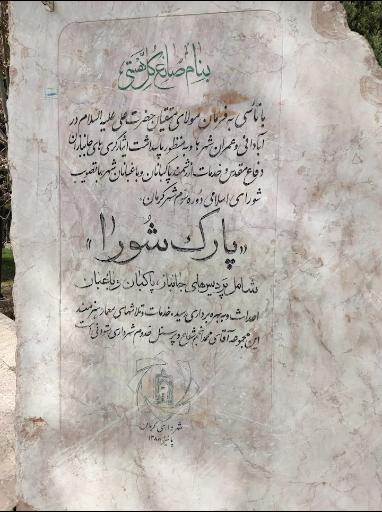 بنام صانع کل هستی
با تاسی به فرمان مولای متقیان حضرت علی علیه السلام در
آبادانی و عمران شهرها و به منظور پاسداشت ایثارگری های جانبازان
دفاع مقدس و خدمات ارزشمند پاکبانان و باغبانان شهر با تصویب
شورای اسلامی دوره سوم شهر کرمان.
«پارک شورا»
شامل پردیس‌های جانباز، پاکبان و باغبان
احداث و به بهره برداری رسید. خدمات و تلاشهای معمار هنرمند
این مجموعه آقای محمد شعاع و پرسنل خدوم شهرداری ستودنی است
شهرداری کرمان
پائیز ۱۳۸۸